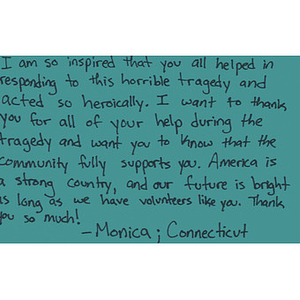 I am so inspired that you all helped in
responding to this horrible tragedy and
acted so heroically. I want to thank
you for all of your help during the
tragedy and want you to know that the
community fully supports you. America is
a strong country, and our future is bright
as long as we have volunteers like you. Thank
you so much!
- Monica; Connecticut